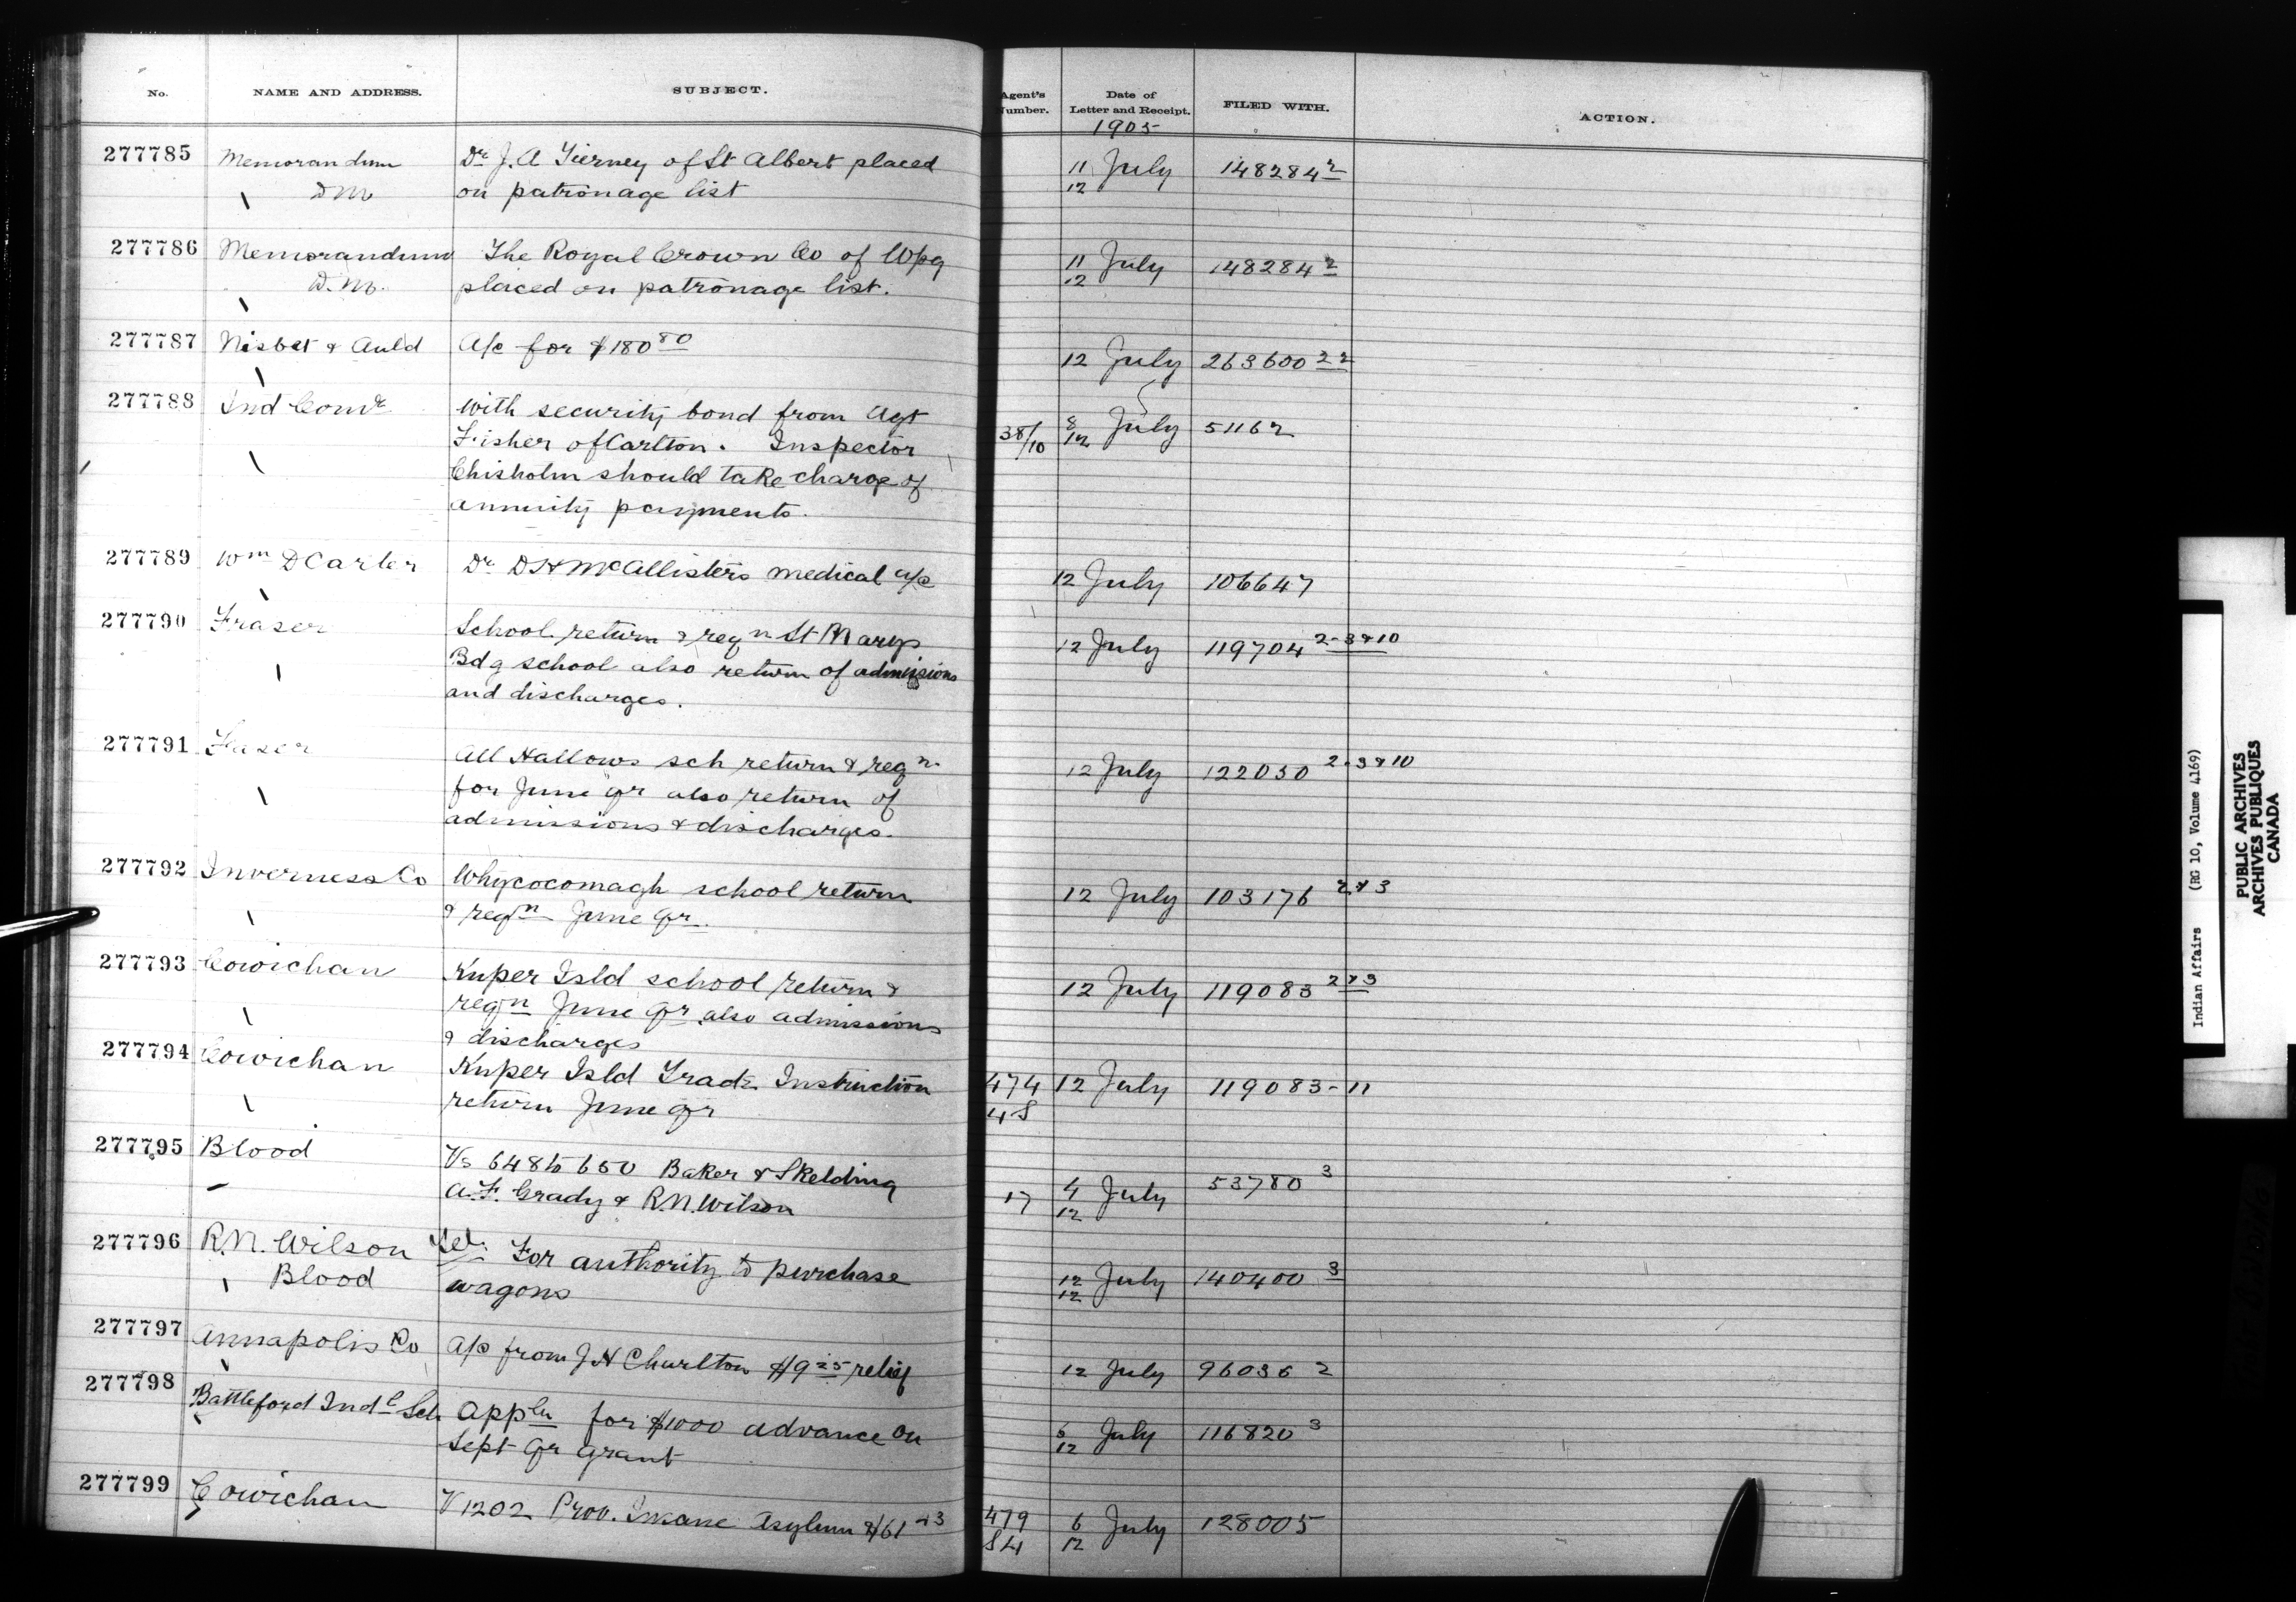 No. NAME AND ADDRESS. SUBJECT. Agent's Number. Date of Letter and Receipt. FILED WITH. ACTION.
1905
277785 Memorandum Dr J. A Tierney of St Albert placed 11 July 148284 2
D M on patronage list 12
277786 Memorandum The Royal Crown Co of Wpg 11 July 148284 2
D. M. placed on patronage list. 12
277787 Nisbet & Auld A/c for $180 80 12 July 263600 22
277788 Ind Comr With security bond from Agt 8 July 51162
Fisher of Carlton. Inspector 38/10 12
Chisholm should take charge of
annuity payments.
277789 Wm D Carter Dr D H McAllisters medical a/c 12 July 106647
277790 Fraser School return & reqn St Marys 12 July 119704 2-3&10
Bdg school also return of admissions
and discharges.
277791 Fraser All Hallows sch return & reqn 12 July 122030 2-3&10
for June qr also return of
admissions & discharges.
277792 Inverness Co Whycocomagh school return 12 July 103176 2&3
& reqn June Qr.
277793 Cowichan Kuper Isld school return & 12 July 119083 2&3
reqn June Qr also admissions
& discharges
277794 Cowichan Kuper Isld Trade Instruction 474 12 July 119083-11
return June Qr 48
277795 Blood Vs 648 to 650 Baker & Skelding 4 July 53780 3
A. F. Grady & R. N. Wilson 17 12
277796 R. N. Wilson Tel. For authority to purchase 12 July 140400 3
Blood wagons 12
277797 Annapolis Co A/c from J H Churlton $9 25 relief 12 July 96036 2
277798 Battleford Indl Sch Appln for $1000 advance on 6 July 116820 3
Sept Qr grant 12
277799 Cowichan V 1202 Prov. Insane Asylum $61 479 6 July 128005
84 12
Indian Affairs (RG 10, Volume 4169)
PUBLIC ARCHIVES
ARCHIVES PUBLIQUES
CANADA